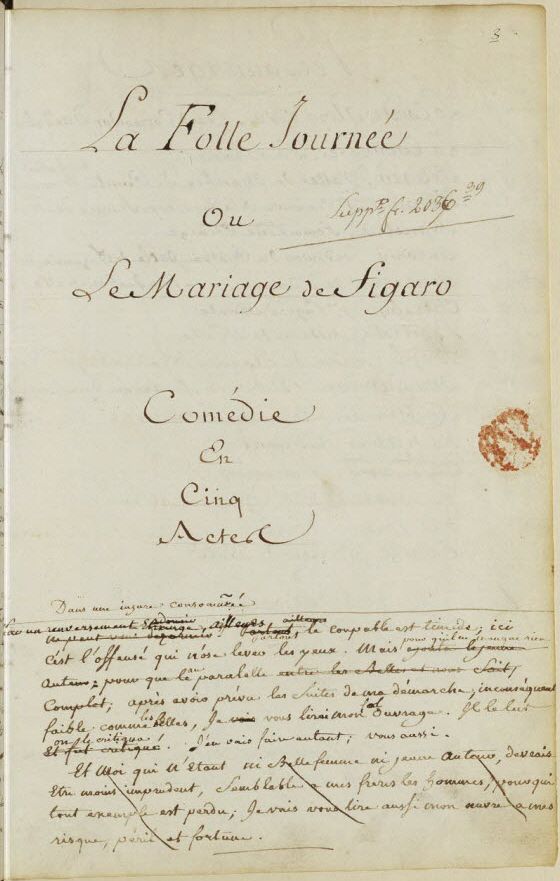 3
La Folle Journée
Ou
Supp.t fr. 2036 39
Le Mariage de Figaro
Comédie
En
Cinq
Actes
Dans une injure consommée
par un renversement ailleurs
partout, le coupable est timide; ici
c'est l'offensé qui n'ose lever les yeux. Mais ajoute le jeune pour qu'il ne manque rien
Auteur; pour que le parallele entre les Belles et nous soit
Complet, après avoir prévu les Suites de ma démarche, inconséquent
faible comme les Belles, Je vous lirai mon Ouvrage. Il le lut
on le critiqua
Et fut critiqué. J'en vais faire autant; vous aussi.
Et Moi qui n'Etant ni Belle femme ni jeune Auteur, devrais
Etre moins imprudent, Semblable a mes freres les hommes, pour qui
tout exemple est perdu; Je vais vous lire aussi mon œuvre a mes
risque, péril et fortune.